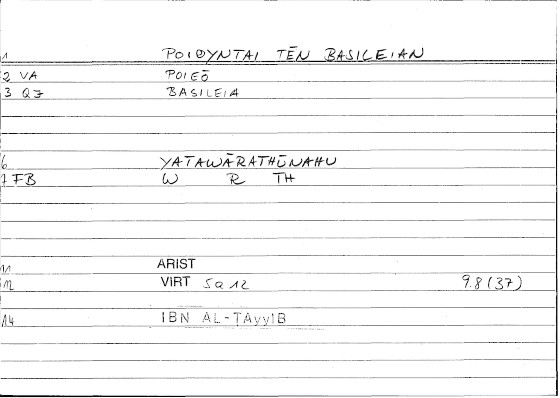 1 POIOYNTAI TĒN BASILEIAN
2 VA POIEŌ
3 Q7 BASILEIA
6 YATAWĀRATHŪNAHU
7 FB W R TH
11 ARIST
12 VIRT 5a12 9.8(37)
14 IBN AL-ṬAyyIB